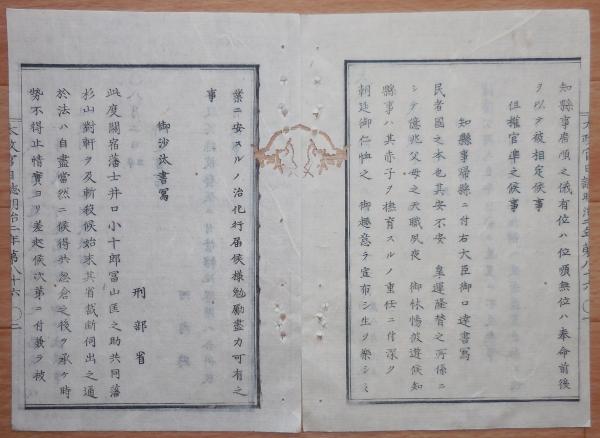 知縣事席順之儀有位ハ位順無位ハ奉命前後
ヲ以テ被相定候事
但權官準之候事
知縣事歸縣ニ付右大臣御口達書寫
民者國之本也其安不安 皇運隆替之所係ニ
シテ億兆父母之天職夙夜 御怵惕被遊候知
縣事ハ其赤子ヲ撫育スルノ重任ニ付深ク
朝廷御仁恤之 御趣意ヲ宣布シ生ヲ樂シミ
業ニ安スルノ治化行届候様勉勵盡力可有之
事
御沙汰書寫
刑部省
此度關宿藩士井口小十郎冨山匡之助共同藩
杉山對軒ヲ及斬殺候始末其省裁斷伺出之通
於法ハ自盡當然ニ候得共怱倉之後ヲ承ケ時
勢不得止情實ヨリ差起候次第ニ付義ヲ被
太政官日誌明治二年第八十六 〇二